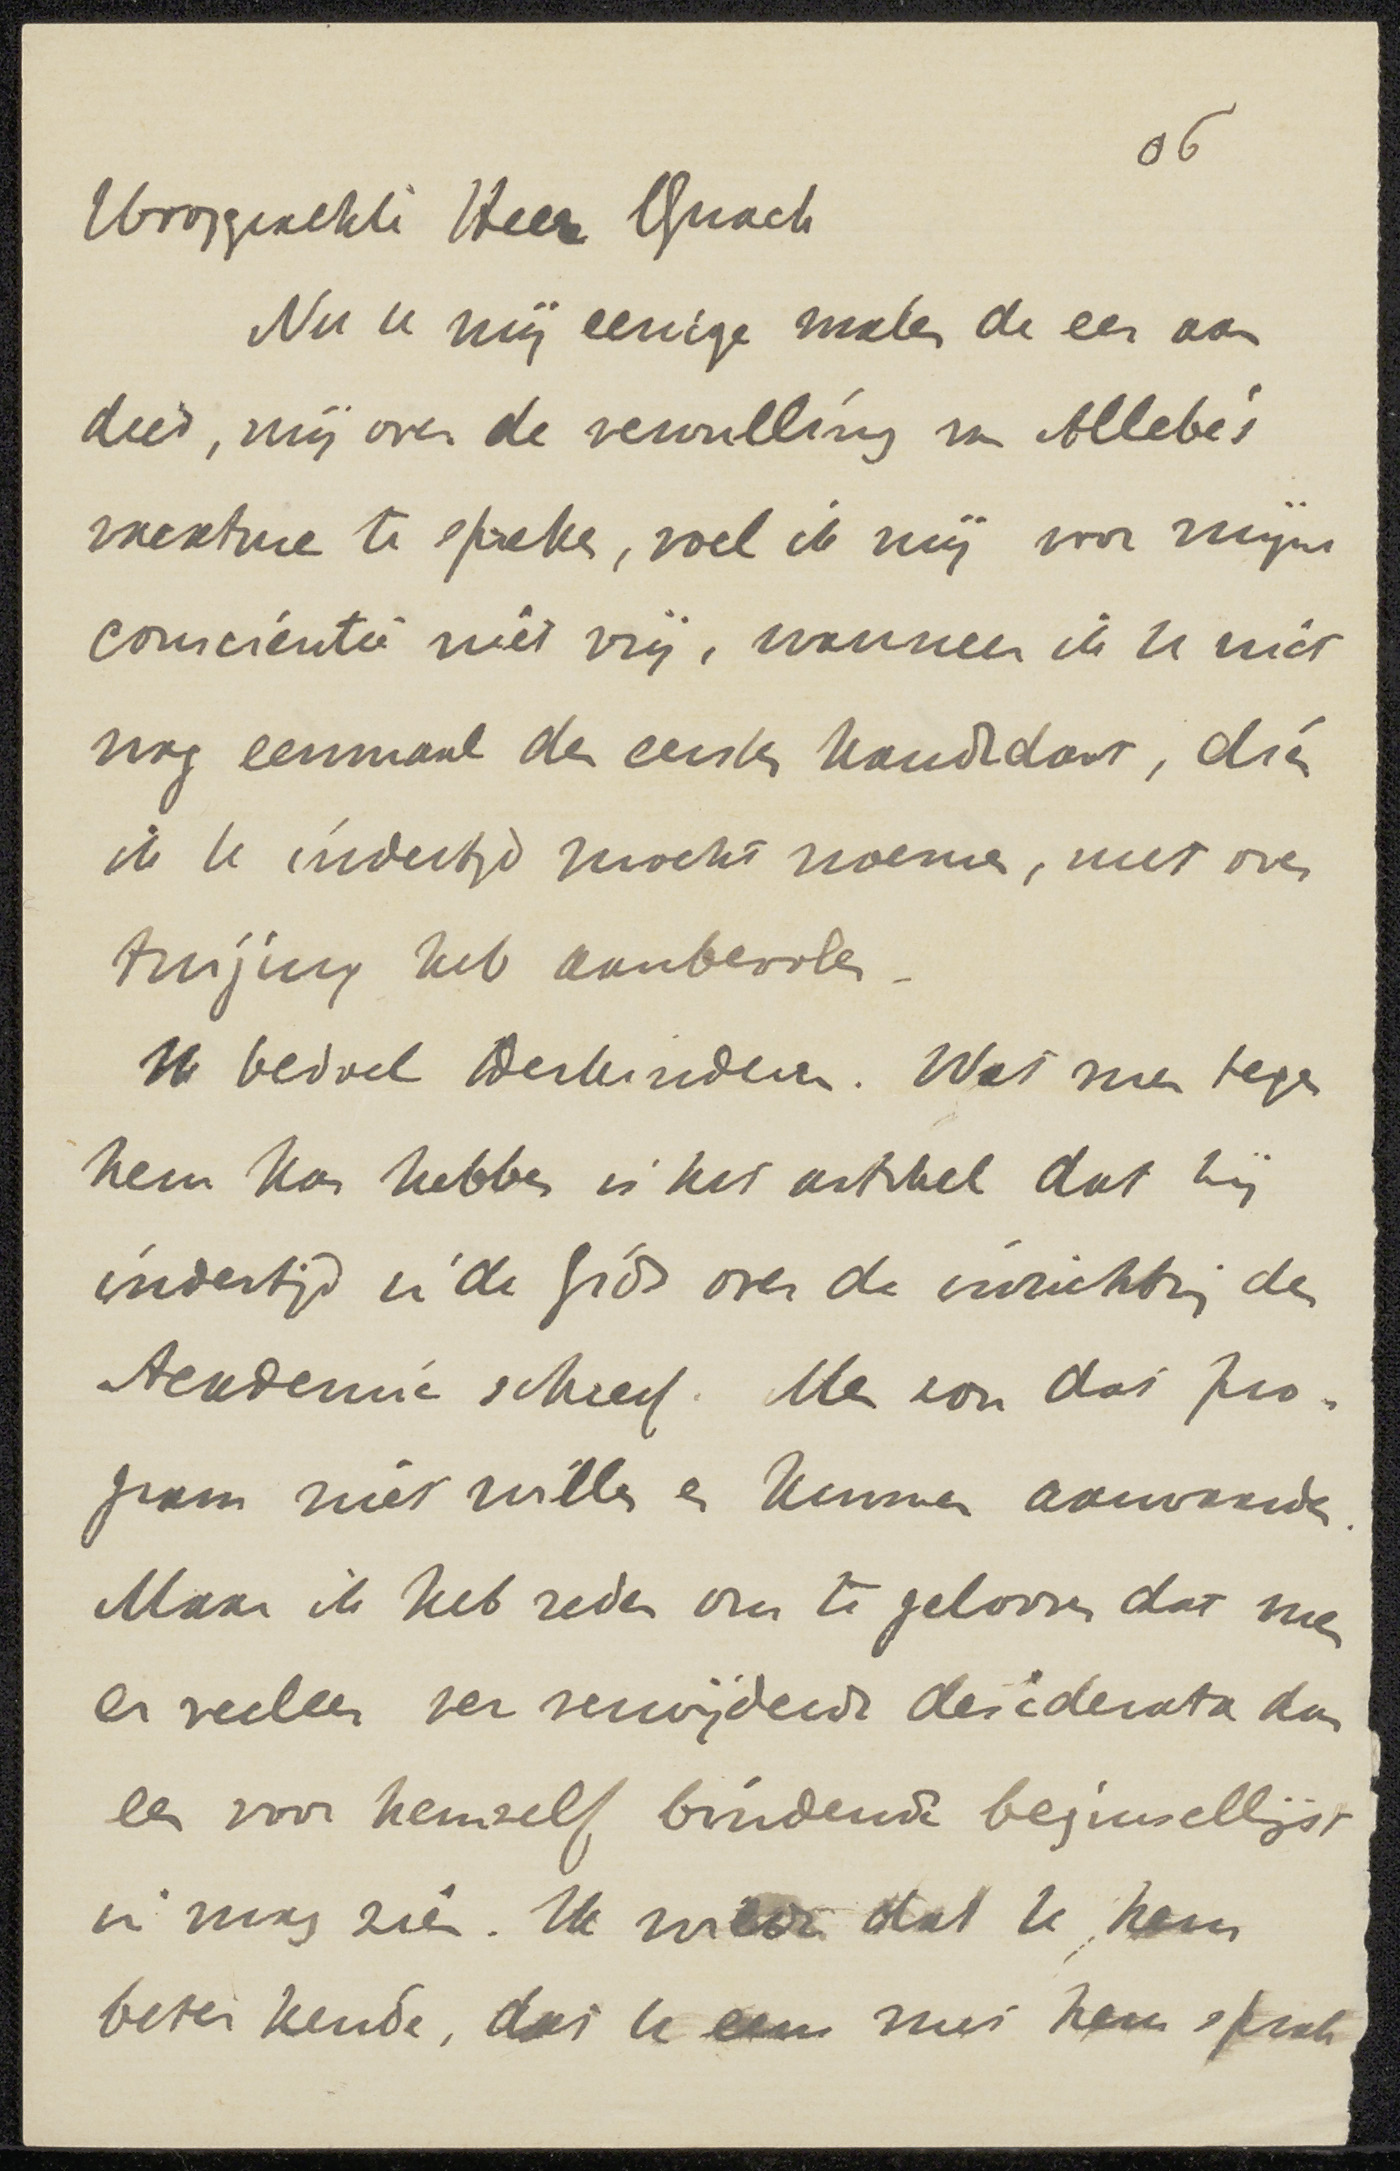 06
Hooggeachte Heer Quack
Nu U mij eenige malen de eer aan
deed, mij over de vervulling van Allebé's
vacature te spreken, voel ik mij voor mijne
conscientie niet vrij, wanneer ik U niet
nog eenmaal den eersten kandidaat, dien
ik U indertijd mocht noemen, met over
tuiging heb aanbevolen.
Ik bedoel Derkinderen. Wat men tegen
hem kan hebben is het artikel dat hij
indertijd in de Gids over de inrichting der
Academie schreef. Men zou dat pro-
gram niet willen en kunnen aanvaarden.
Maar ik heb reden om te gelooven dat men
er veeleer ver verwijderde desiderata dan
een voor hemzelf bindende beginsellijst
in mag zien. Ik wilde dat U hem
beter kende, dat U eens met hem sprak